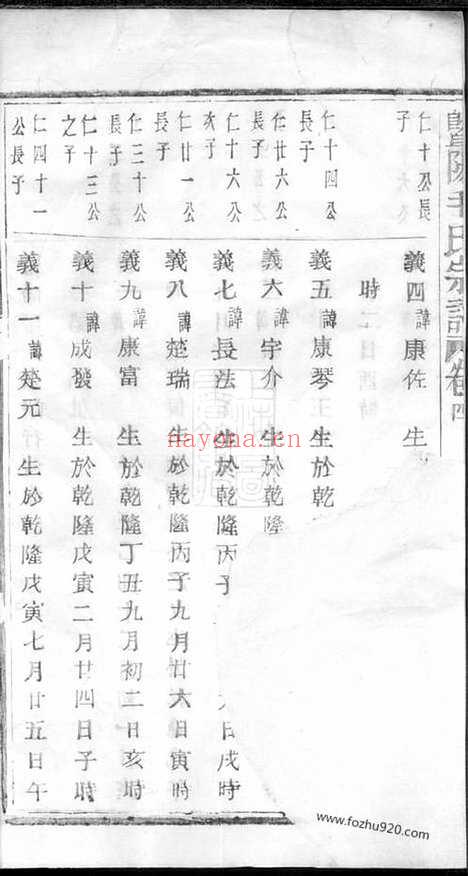 暨陽 氏宗譜 卷四
仁十公長
子
義四 諱 康佐 生
時
仁十四公
長子
義五 諱 康琴 生於乾隆
仁廿六公
長子
義六 諱 宇介 生於乾隆
仁十六公
次子
義七 諱 長法 生於乾隆丙子 日戌時
仁廿一公
長子
義八 諱 楚瑞 生於乾隆丙子九月廿六日寅時
仁三十公
長子
義九 諱 康富 生於乾隆丁丑九月初二日亥時
仁十三公
之子
義十 諱 成發 生於乾隆戊寅二月廿四日子時
仁四十一
公長子
義十一 諱 楚元 生於乾隆戊寅七月廿五日午
nayona.cn
www.fozhu920.com